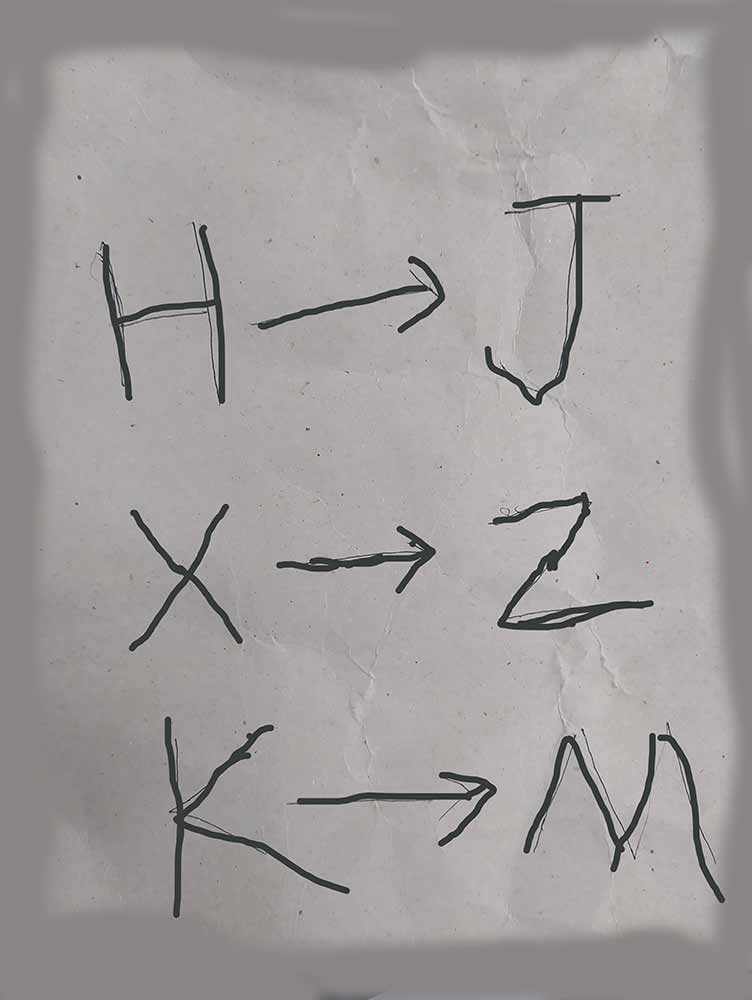 H → J
X → Z
K → M